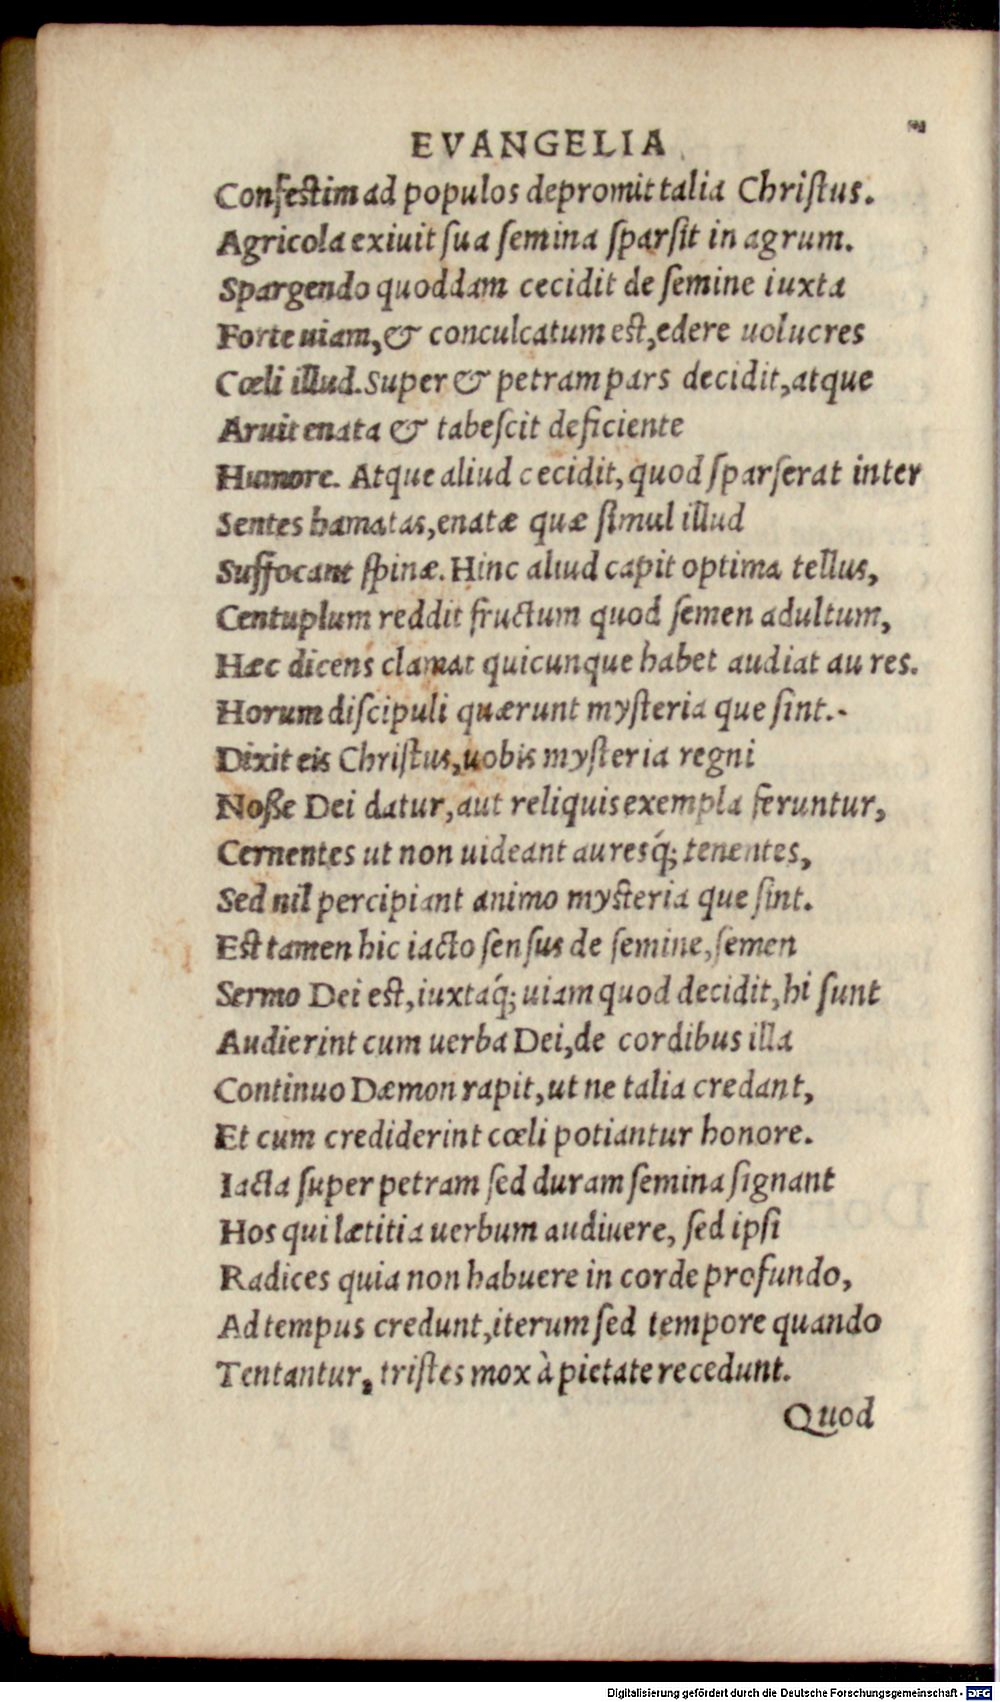 EVANGELIA
Confestim ad populos depromit talia Christus.
Agricola exiuit sua semina sparsit in agrum.
Spargendo quoddam cecidit de semine iuxta
Forte uiam, & conculcatum est, edere uolucres
Cœli illud. Super & petram pars decidit, atque
Aruit enata & tabescit deficiente
Humore. Atque aliud cecidit, quod sparserat inter
Sentes hamatas, enatæ quæ simul illud
Suffocant spinæ. Hinc aliud capit optima tellus,
Centuplum reddit fructum quod semen adultum,
Hæc dicens clamat quicunque habet audiat aures.
Horum discipuli quærunt mysteria que sint.-
Dixit eis Christus, uobis mysteria regni
Noße Dei datur, aut reliquis exempla feruntur,
Cernentes ut non uideant auresq́; tenentes,
Sed nil percipiant animo mysteria que sint.
Est tamen hic iacto sensus de semine, semen
Sermo Dei est, iuxtaq́; uiam quod decidit, hi sunt
Audierint cum uerba Dei, de cordibus illa
Continuo Dæmon rapit, ut ne talia credant,
Et cum crediderint cœli potiantur honore.
Iacta super petram sed duram semina signant
Hos qui lætitia uerbum audiuere, sed ipsi
Radices quia non habuere in corde profundo,
Ad tempus credunt, iterum sed tempore quando
Tentantur, tristes mox à pietate recedunt.
Quod
Digitalisierung gefördert durch die Deutsche Forschungsgemeinschaft - DFG